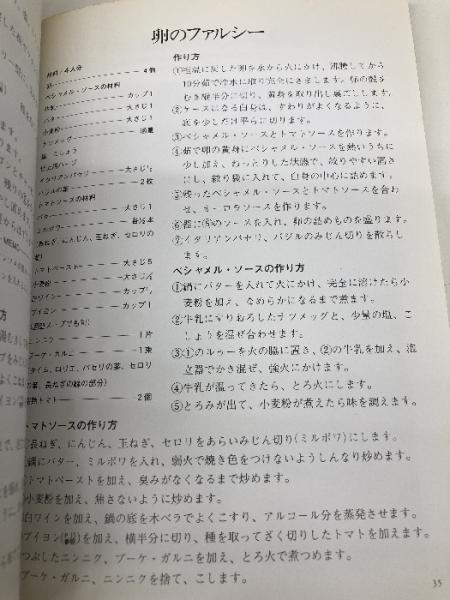 卵のファルシー
材料/4人分
卵 4個
ベシャメル・ソースの材料
牛乳 カップ1
バター 大さじ1
小麦粉 大さじ1
ナツメッグ 適量
塩、こしょう
イタリアンパセリ 大さじ
バジルの葉 2枚
トマトソースの材料
バター 大さじ1
ミルポワ 各
(長ねぎ、にんじん、玉ねぎ、セロリの
トマトペースト 大さじ5
小麦粉 大さじ
白ワイン カップ
ブイヨン カップ1
ニンニク 1片
ブーケ・ガルニ 1束
(タイム、ロリエ、パセリの茎、セロリ
の葉、長ねぎの緑の部分)
完熟トマト 2個
作り方
①塩、酢に戻した卵を水から火にかけ、沸騰してから
10分茹で冷水に取り完全にさまします。卵の殻を
むき横半分に切り、黄身を取り出し裏ごしします。
②ケースになる白身は、すわりがよくなるように、
底を少しだけ平らに切ります。
③ベシャメル・ソースとトマトソースを作ります。
④茹で卵の黄身にベシャメル・ソースを熱いうちに
少し加え、ねっとりした状態で、絞りやすい固さ
にし、絞り袋に入れて、白身の中心に詰めます。
⑤残ったベシャメル・ソースとトマトソースを合わ
せ、オーロラソースを作ります。
⑥器に⑤のソースを入れ、卵の詰めものを盛ります。
⑦イタリアンパセリ、バジルのみじん切りを散らし
ます。
ベシャメル・ソースの作り方
①鍋にバターを入れて火にかけ、完全に溶けたら小
麦粉を加え、なめらかになるまで煮ます。
②牛乳にすりおろしたナツメッグと、少量の塩、こ
しょうを混ぜ合わせます。
③①のルゥーを火の脇に置き、②の牛乳を加え、泡
立器でかき混ぜ、強火にかけます。
④牛乳が温ってきたら、とろ火にします。
⑤とろみが出て、小麦粉が煮えたら味を調えます。
トマトソースの作り方
長ねぎ、にんじん、玉ねぎ、セロリをあらいみじん切り(ミルポワ)にします。
鍋にバター、ミルポワを入れ、弱火で焼き色をつけないようしんなり炒めます。
トマトペーストを加え、臭みがなくなるまで炒めます。
小麦粉を加え、焦さないように炒めます。
白ワインを加え、鍋の底を木ベラでよくこすり、アルコール分を蒸発させます。
ブイヨンを加え、横半分に切り、種を取ってざく切りしたトマトを加えます。
つぶしたニンニク、ブーケ・ガルニを加え、とろ火で煮つめます。
ブーケ・ガルニ、ニンニクを捨て、こします。
35